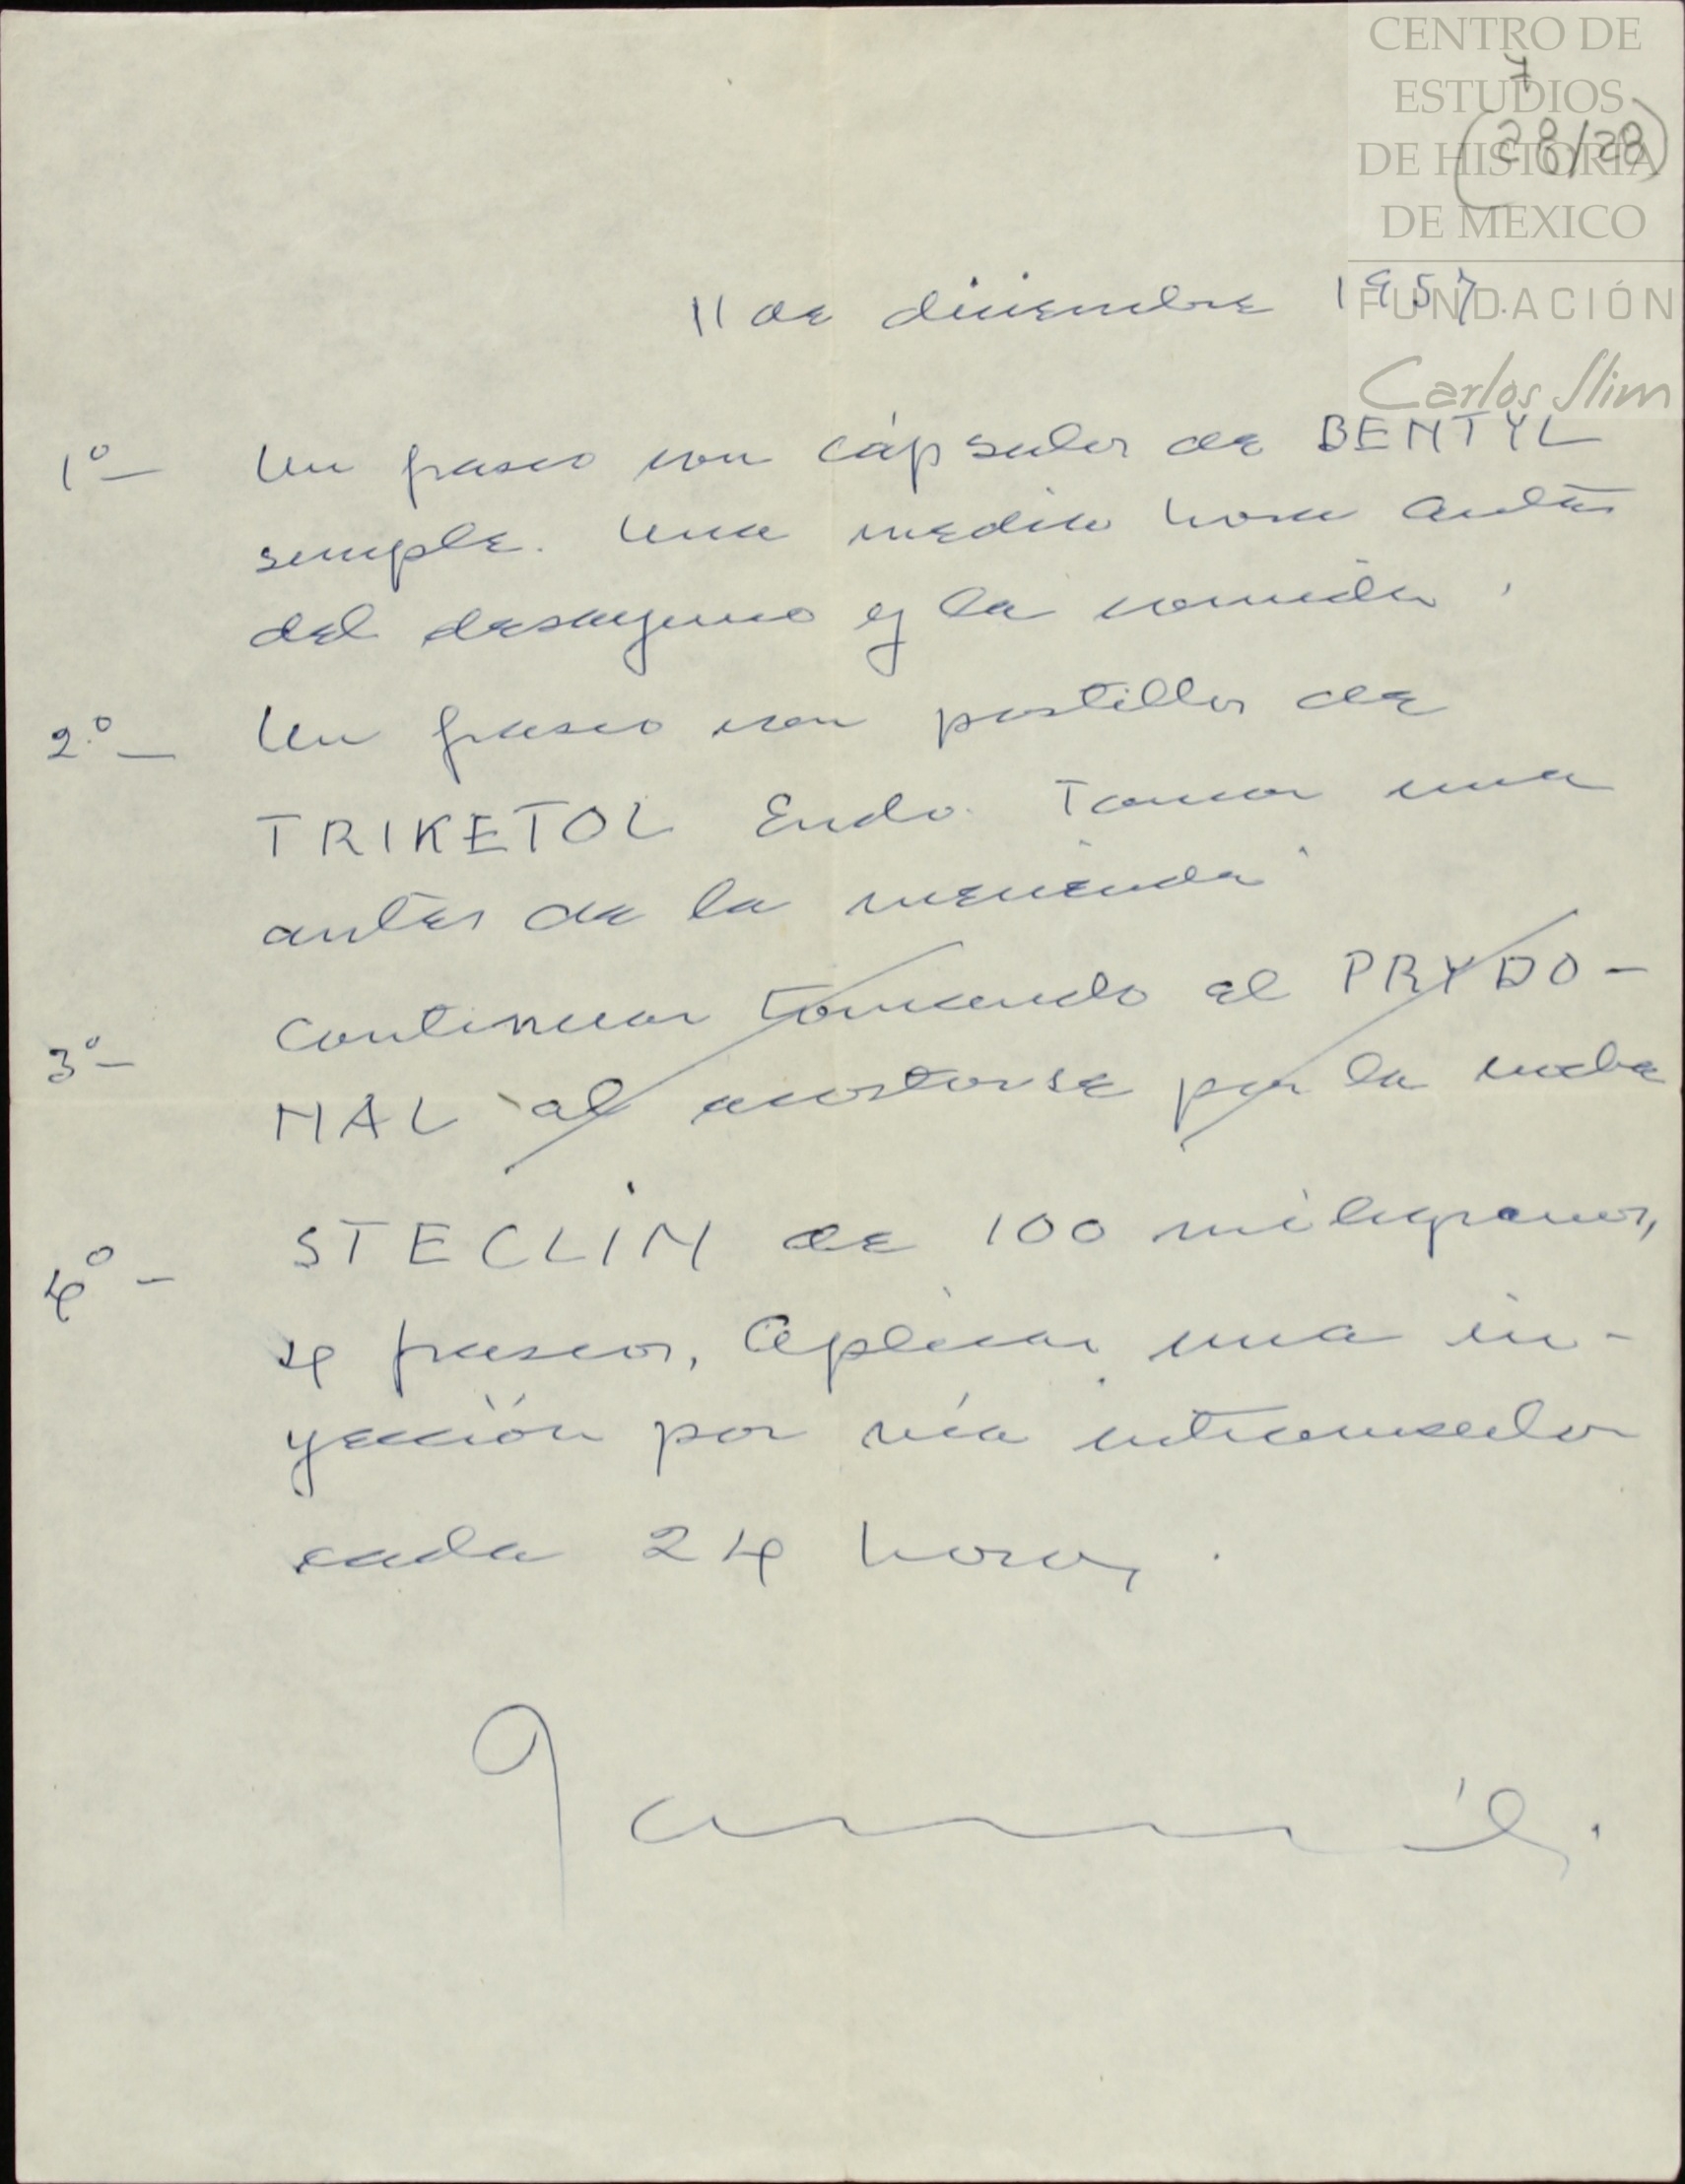 CENTRO DE
ESTUDIOS
DE HISTORIA
DE MEXICO
FUNDACIÓN
Carlos Slim
7
(28/28)
11 de diciembre 1957.
1º— Un frasco con cápsulas de BENTYL
simple. Una media hora antes
del desayuno y la comida.
2.º— Un frasco con pastillas de
TRIKETOL Endo. Tomar una
antes de la merienda
3º— Continuar tomando el PRYDO-
NAL al acostarse por la noche
4º— STECLIN de 100 miligramos,
4 frascos, Aplicar una in-
yección por vía intramuscular
cada 24 horas.